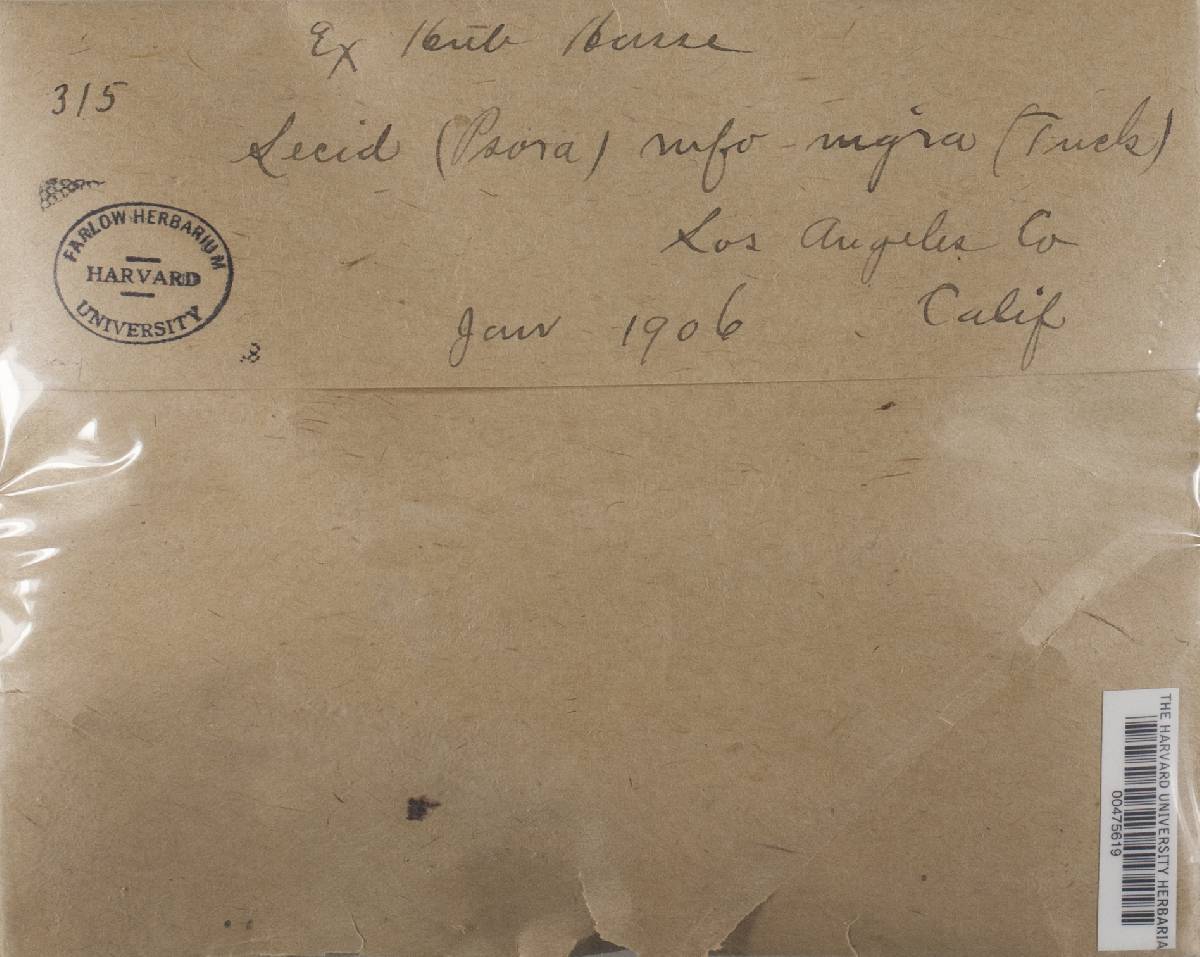 Ex Herb Hasse
315
Lecid (Psora) rufo-nigra (Tuck)
Los Angeles Co
Jan 1906 Calif
FARLOW HERBARIUM
HARVARD
UNIVERSITY
THE HARVARD UNIVERSITY HERBARIA
00475619